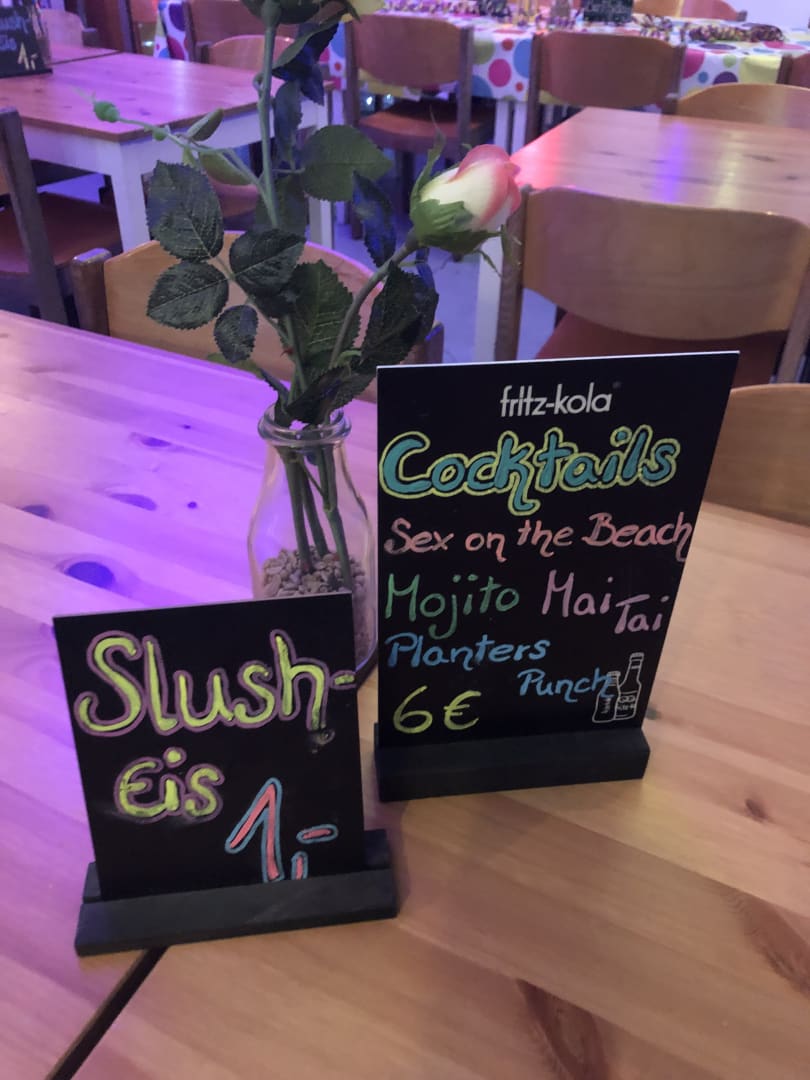 fritz-kola
Cocktails
Sex on the Beach
Mojito Mai Tai
Planters
Punch
6€
Slush-
Eis
1,-